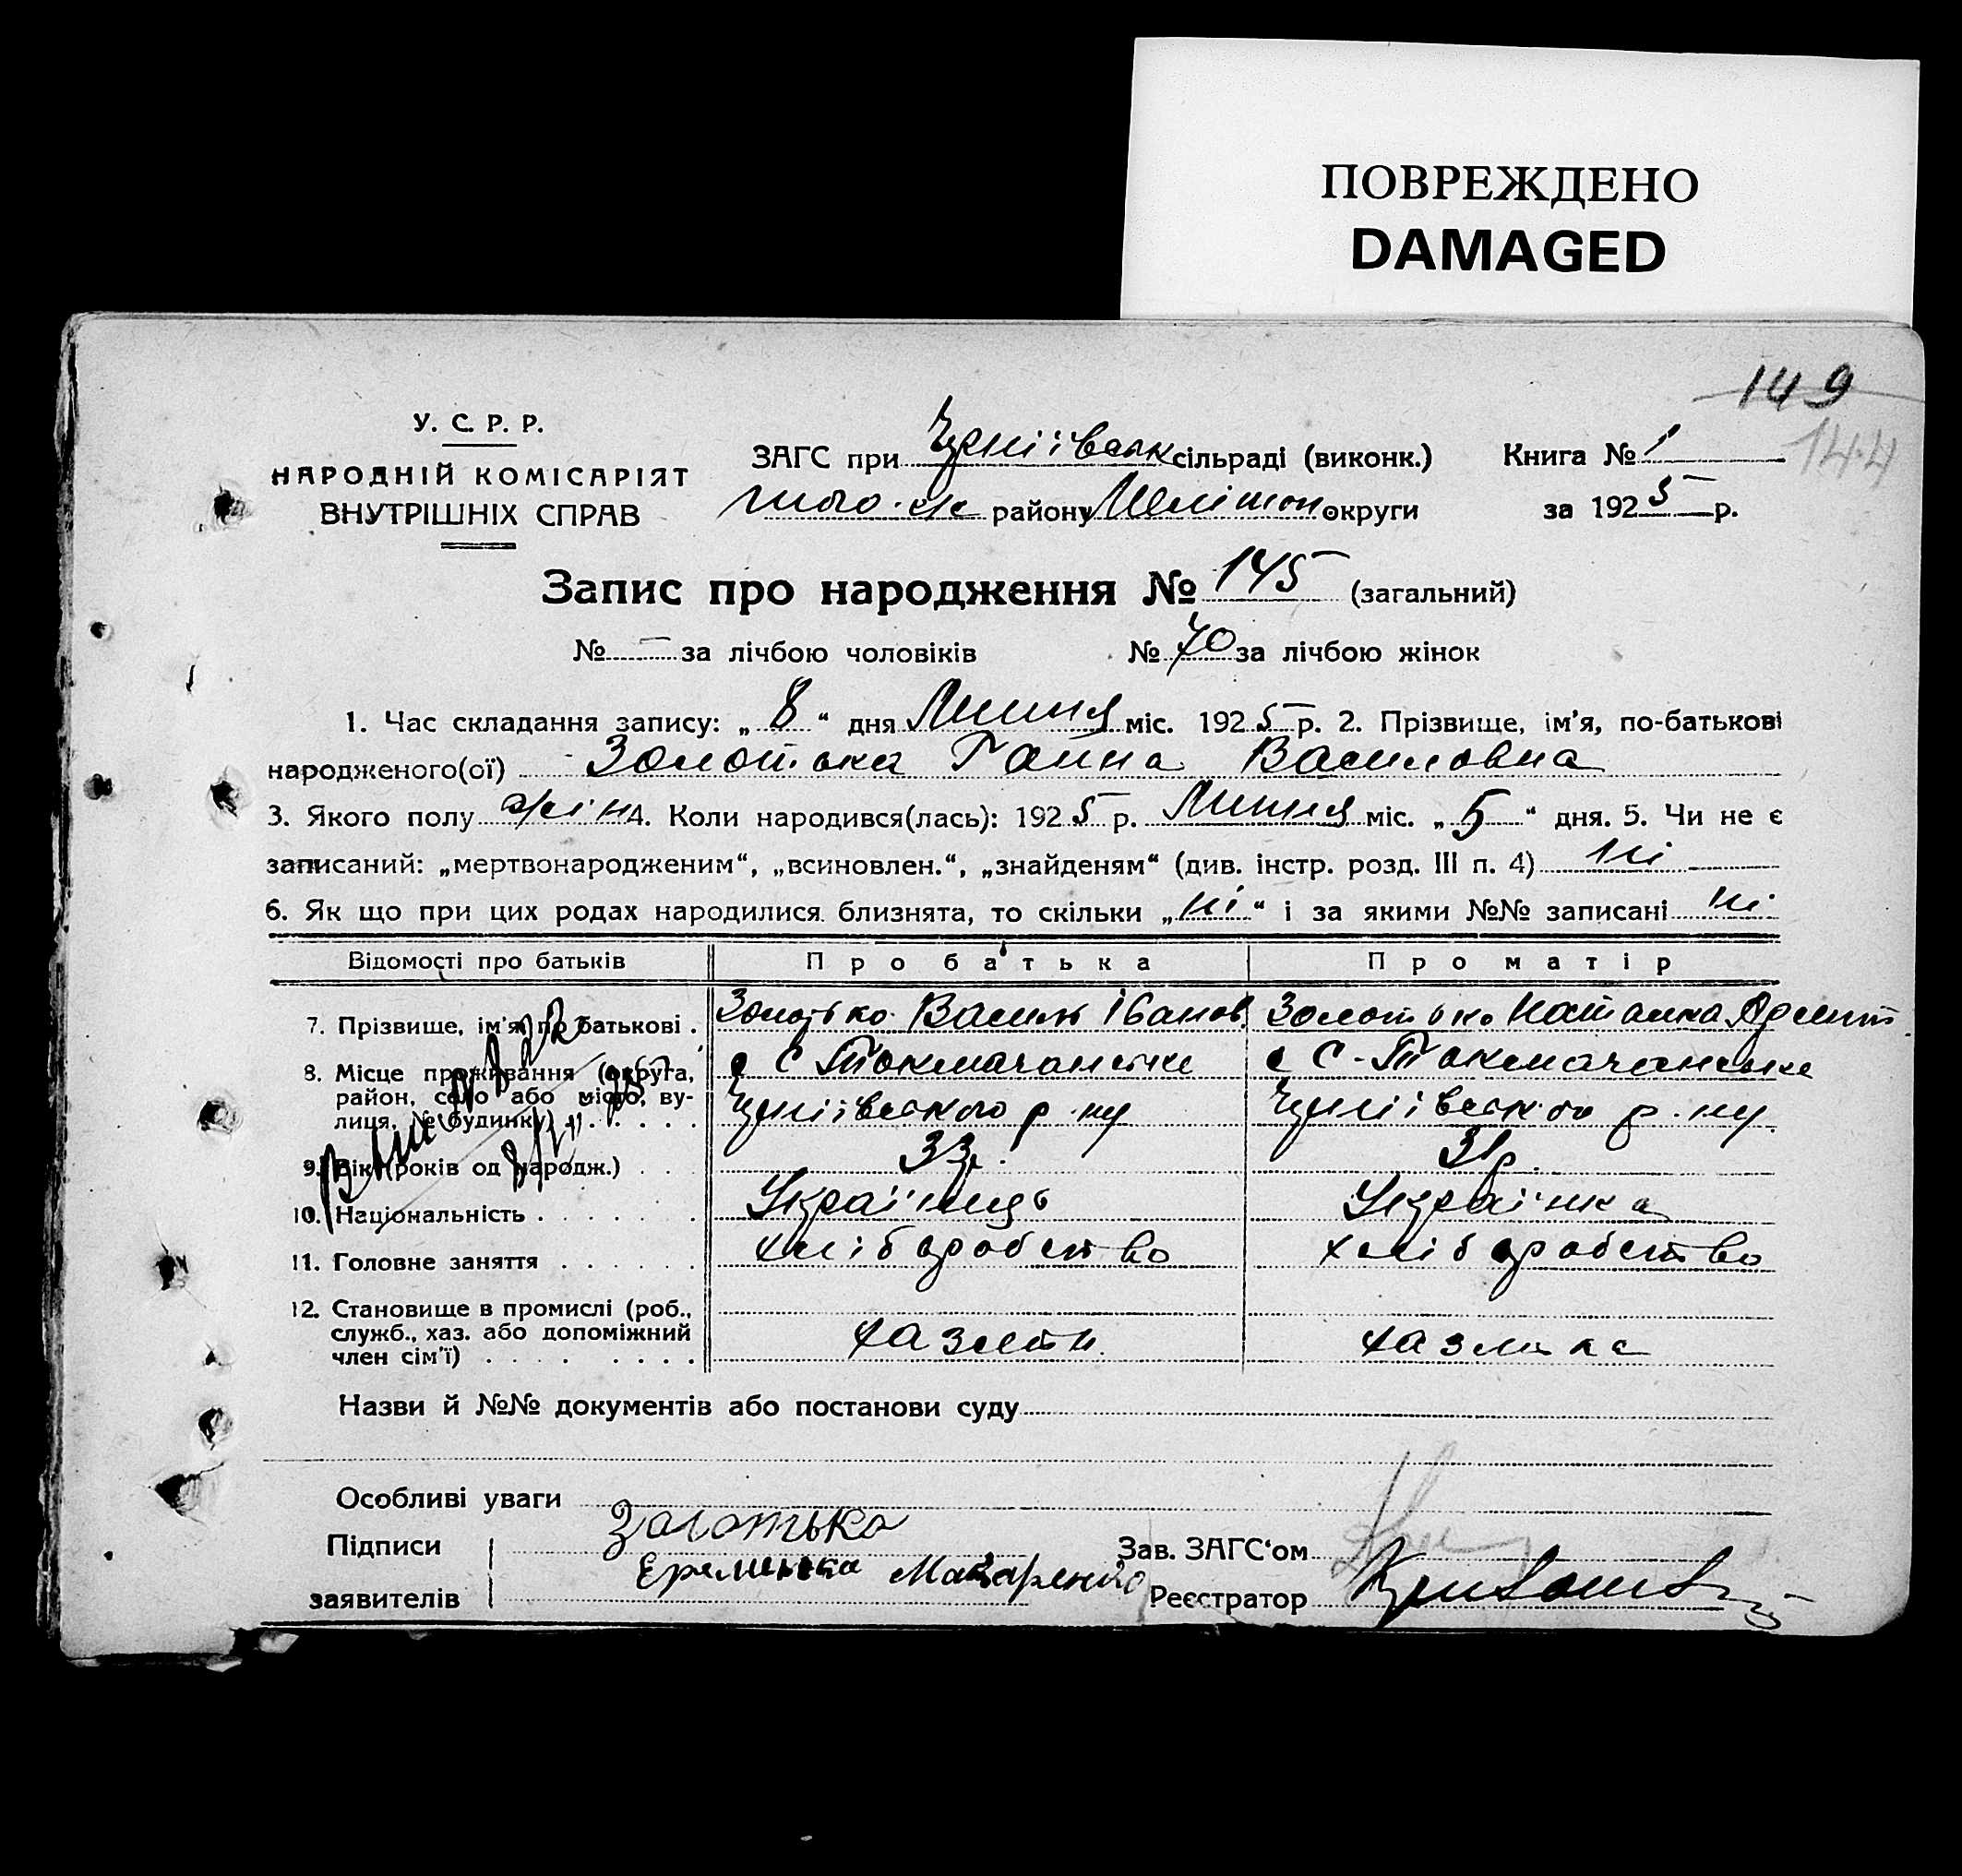 ПОВРЕЖДЕНО
DAMAGED
149
144
У. С. Р. Р.
НАРОДНІЙ КОМІСАРІЯТ
ВНУТРІШНІХ СПРАВ
ЗАГС при сільраді (виконк.) Книга № 1
того-ж району Мелітоп округи за 1925 р.
Запис про народження № 145 (загальний)
№ – за лічбою чоловіків № 70 за лічбою жінок
1. Час складання запису: „8“ дня Липня міс. 1925 р. 2. Прізвище, ім’я, по-батькові
народженого(ої) Золотько Ганна Василовна
3. Якого полу жін 4. Коли народився(лась): 1925 р. Липня міс. „5“ дня. 5. Чи не є
записаний: „мертвонародженим“, „всиновлен.“, „знайденям“ (див. інстр. розд. III п. 4) ні
6. Як що при цих родах народилися близнята, то скільки „ні“ і за якими №№ записані ні
Відомості про батьків Про батька Про матір
7. Прізвище, ім’я, по батькові . Золотько Василь Іванов. Золотько Наталка
8. Місце проживання (округа, район, село або місто, вулиця, № будинку) . . . . . с С-Токмачанське р-ну с С-Токмачанське р-ну.
9. Вік (років од народж.) . . . 33р. 31р.
10. Національність . . . . . . . Українець Українка
11. Головне заняття . . . . . . хліборобство хліборобство
12. Становище в промислі (роб., служб., хаз. або допоміжний член сім’ї) . . . . . . . хазяїн хазяйка
Назви й №№ документів або постанови суду
Особливі уваги
Підписи Золотько Зав. ЗАГС‘ом
заявителів Макаренко Реєстратор